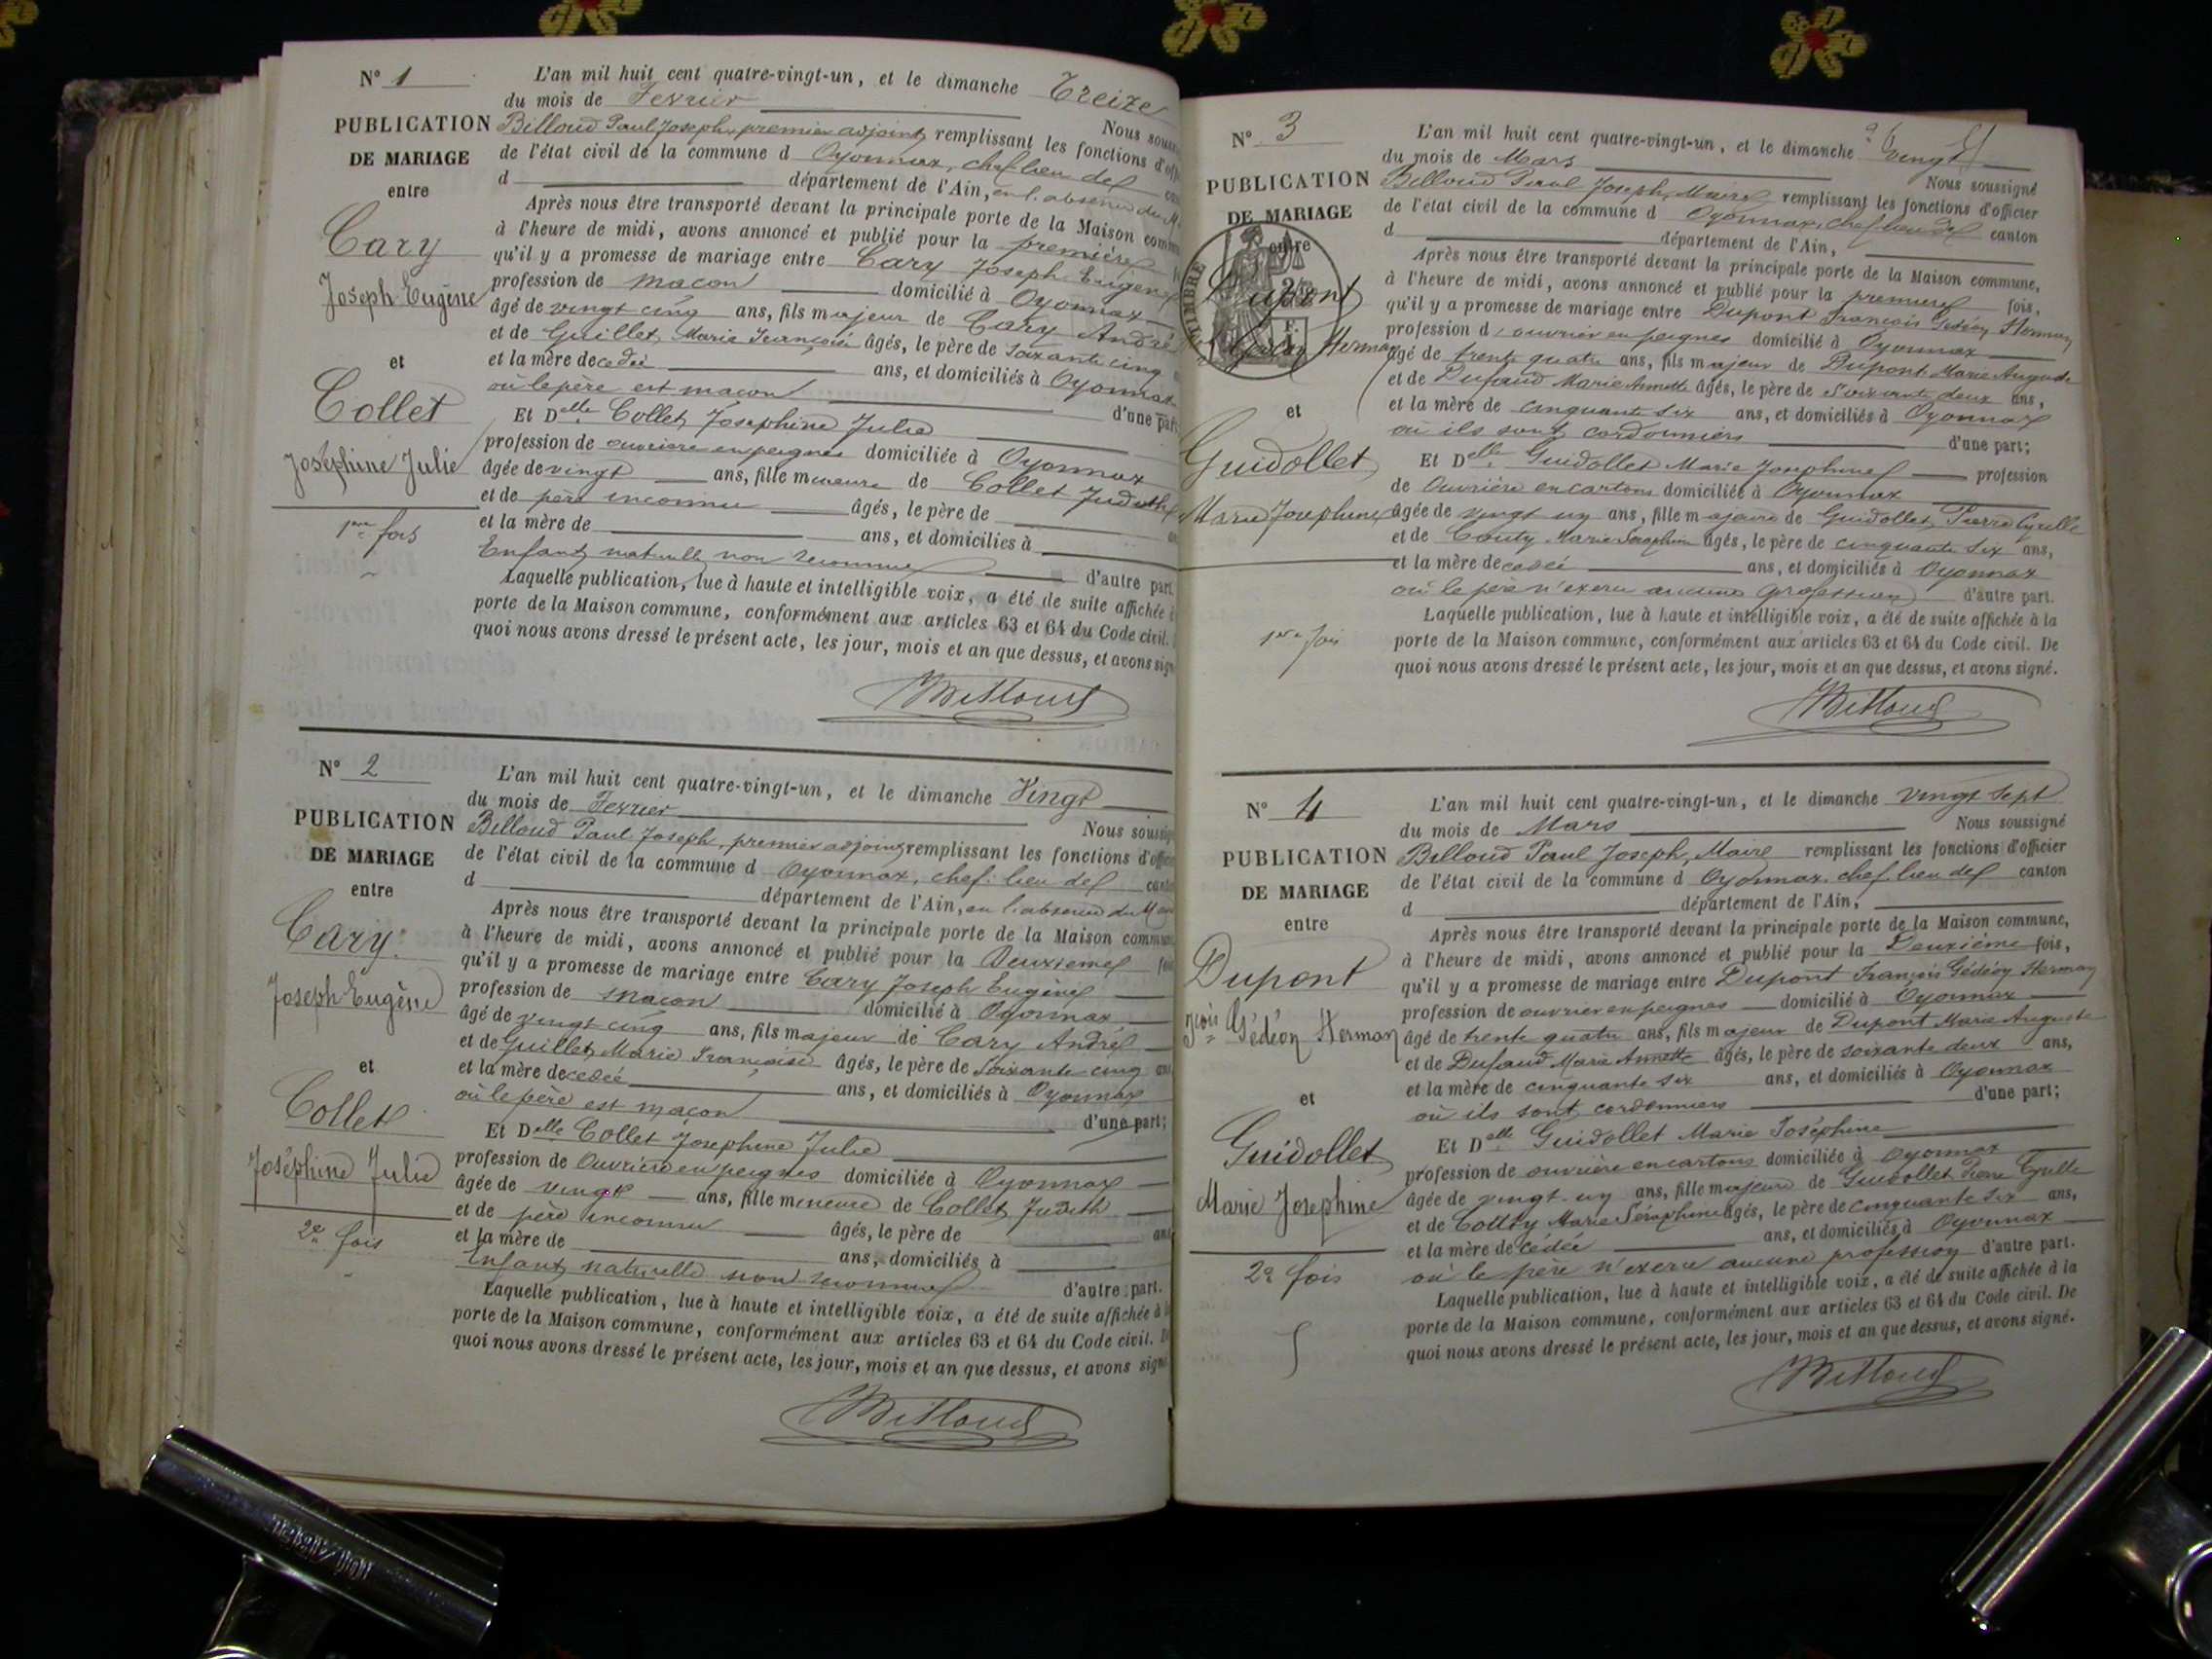 N° 1
L'an mil huit cent quatre-vingt-un, et le dimanche Treize
du mois de Fevrier
Nous sous
PUBLICATION
DE MARIAGE
entre
Cary
Joseph Eugène
et
Collet
Joséphine Julie
1ere fois
Billoud Paul Joseph, premier adjoint remplissant les fonctions d'offi
de l'état civil de la commune d Oyonnax, chef lieu de
d département de l'Ain, en l'absence du M
Après nous être transporté devant la principale porte de la Maison comm
à l'heure de midi, avons annoncé et publié pour la première
qu'il y a promesse de mariage entre Cary Joseph Eugène
profession de macon domicilié à Oyonnax
âgé de vingt cinq ans, fils majeur de Cary André
et de Guillet, Marie Françoise âgés, le père de soixante cinq
et la mère decedée ans, et domiciliés à Oyonnax
où le père est macon d'une part
Et Delle Collet Joséphine Julie
profession de ouvrière en peignes domiciliée à Oyonnax
âgée de vingt ans, fille mineure de Collet Judith
et de père inconnu âgés, le père de
et la mère de ans, et domiciliés à
Enfant naturelle non reconnue d'autre part.
Laquelle publication, lue à haute et intelligible voix, a été de suite affichée à
porte de la Maison commune, conformément aux articles 63 et 64 du Code civil.
quoi nous avons dressé le présent acte, les jour, mois et an que dessus, et avons sign
Billoud
N° 2
L'an mil huit cent quatre-vingt-un, et le dimanche Vingt
du mois de Fevrier
Nous soussign
PUBLICATION
DE MARIAGE
entre
Cary
Joseph Eugène
et
Collet
Joséphine Julie
2e fois
Billoud Paul Joseph, premier adjoint remplissant les fonctions d'offici
de l'état civil de la commune d Oyonnax, chef lieu de cant
d département de l'Ain, en l'absence du M
Après nous être transporté devant la principale porte de la Maison commune
à l'heure de midi, avons annoncé et publié pour la Deuxieme foi
qu'il y a promesse de mariage entre Cary Joseph Eugène
profession de macon domicilié à Oyonnax
âgé de vingt cinq ans, fils majeur de Cary André
et de Guillet, Marie Françoise âgés, le père de soixante cinq an
et la mère decedée ans, et domiciliés à Oyonnax
où le père est maçon d'une part;
Et Delle Collet Joséphine Julie
profession de Ouvrière en peignes domiciliée à Oyonnax
âgée de vingt ans, fille mineure de Collet Judith
et de père inconnu âgés, le père de ans
et la mère de ans, domiciliés à
Enfant naturelle non reconnue d'autre part.
Laquelle publication, lue à haute et intelligible voix, a été de suite affichée à
porte de la Maison commune, conformément aux articles 63 et 64 du Code civil.
quoi nous avons dressé le présent acte, les jour, mois et an que dessus, et avons signé
Billoud
N° 3
L'an mil huit cent quatre-vingt-un, et le dimanche vingt
du mois de Mars
Nous soussigné
PUBLICATION
DE MARIAGE
entre
TIMBRE
Dupont
Gédéon Herman
et
Guidollet
Marie Josephine
1ere fois
Billoud Paul Joseph, Maire remplissant les fonctions d'officier
de l'état civil de la commune d Oyonnax, chef lieu de canton
d département de l'Ain,
Après nous être transporté devant la principale porte de la Maison commune,
à l'heure de midi, avons annoncé et publié pour la premiere fois,
qu'il y a promesse de mariage entre Dupont François Gédéon Herman
profession d ouvrier en peignes domicilié à Oyonnax
âgé de trente quatre ans, fils majeur de Dupont Marie Auguste
et de Dufaud Marie Annette âgés, le père de Soixante deux ans,
et la mère de cinquante six ans, et domiciliés à Oyonnax
où ils sont cordonniers d'une part;
Et Delle Guidollet Marie Josephine profession
de Ouvrière en cartons domiciliée à Oyonnax
âgée de vingt un ans, fille majeure de Guidollet, Pierre Cyrille
et de Coutty Marie Seraphine âgés, le père de cinquante six ans,
et la mère decedée ans, et domiciliés à Oyonnax
où le père n'exerce aucune profession d'autre part.
Laquelle publication, lue à haute et intelligible voix, a été de suite affichée à la
porte de la Maison commune, conformément aux articles 63 et 64 du Code civil. De
quoi nous avons dressé le présent acte, les jour, mois et an que dessus, et avons signé.
Billoud
N° 4
L'an mil huit cent quatre-vingt-un, et le dimanche vingt Sept
du mois de Mars
Nous soussigné
PUBLICATION
DE MARIAGE
entre
Dupont
Fçois Gédéon Herman
et
Guidollet
Marie Josephine
2e fois
Billoud Paul Joseph, Maire remplissant les fonctions d'officier
de l'état civil de la commune d Oyonnax, chef lieu de canton
d département de l'Ain,
Après nous être transporté devant la principale porte de la Maison commune,
à l'heure de midi, avons annoncé et publié pour la Deuxième fois,
qu'il y a promesse de mariage entre Dupont François Gédéon Herman
profession de ouvrier en peignes domicilié à Oyonnax
âgé de trente quatre ans, fils majeur de Dupont Marie Auguste
et de Dufaud Marie Annette âgés, le père de soixante deux ans,
et la mère de cinquante six ans, et domiciliés à Oyonnax
où ils sont cordonniers d'une part;
Et Delle Guidollet Marie Joséphine
profession de ouvrière en cartons domiciliée à Oyonnax
âgée de vingt un ans, fille majeure de Guidollet Pierre Cyrille
et de Coutty Marie Séraphine âgés, le père de cinquante six ans,
et la mère de cédée ans, et domiciliés à Oyonnax
où le père n'exerce aucune profession d'autre part.
Laquelle publication, lue à haute et intelligible voix, a été de suite affichée à la
porte de la Maison commune, conformément aux articles 63 et 64 du Code civil. De
quoi nous avons dressé le présent acte, les jour, mois et an que dessus, et avons signé.
Billoud